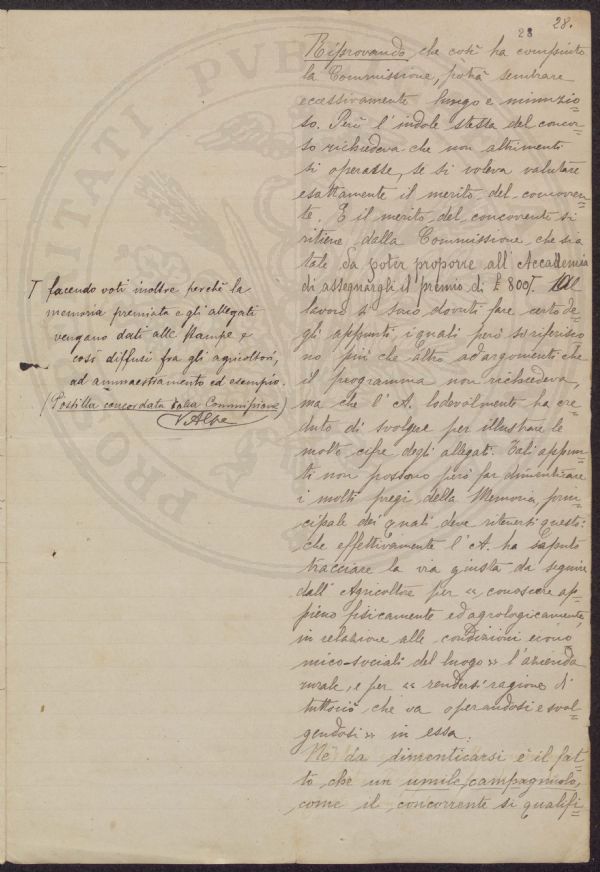 28.
28
Riprovando che così ha compiuto
la Commissione, potrà sembrare
eccessivamente lungo e minuzio=
so. Però l'indole stessa del concor=
so richiedeva che non altrimenti
si operasse, se si voleva valutare
esattamente il merito del concorren=
te. E il merito del concorrente si
ritiene dalla Commissione che sia
tale da poter proporre all'Accademia
di assegnargli il premio di £ 800 T. Al
lavoro si sono dovuti fare certo de=
gli appunti, i quali però si riferisco
no più che altro ad argomenti che
il programma non richiedeva,
ma che l'A. lodevolmente ha cre=
duto di svolgere per illustrare le
molte cifre degli allegati. Tali appun=
ti non possono però far dimenticare
i molti pregi della Memoria, prin=
cipale dei quali deve ritenersi questo:
che effettivamente l'A. ha saputo
tracciare la via giusta da seguire
dall'Agricoltore per « conoscere ap=
pieno fisicamente ed agrologicamente,
in relazione alle condizioni econo
mico-sociali del luogo » l'azienda
rurale, e per « rendersi ragione di
tuttociò che va operandosi e svol=
gendosi » in essa.
Nè da dimenticarsi è il fat=
to che un umile campagnuolo,
come il concorrente si qualifi=
T facendo voti inoltre perchè la
memoria premiata e gli allegati
vengano dati alle stampe e
così diffusi fra gli agricoltori,
ad ammaestramento ed esempio.
(Postilla concordata dalla Commissione)
V. Alpe
PROSPERITATI PVB